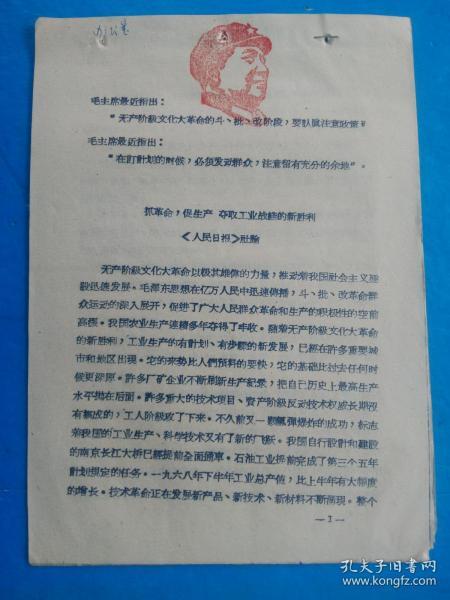 办公室
毛主席最近指出：
“无产阶级文化大革命的斗、批、改阶段，要认真注意政策”
毛主席最近指出：
“在訂計划的时候，必须发动群众，注意留有充分的余地”。
抓革命，促生产 夺取工业战线的新胜利
《人民日报》社論
无产阶级文化大革命以极其雄偉的力量，推动着我国社会主义建
設迅速发展。毛泽东思想在亿万人民中迅速傳播，斗、批、改革命群
众运动的深入展开，促进了广大人民群众革命和生产的积极性的空前
高漲。我国农业生产連續多年夺得了丰收。随着无产阶级文化大革命
的新胜利，工业生产的有計划、有步驟的新发展，已經在許多重要城
市和地区出現。它的来势比人們預料的要快，它的基础比过去任何时
候更深厚。許多厂矿企业不断刷新生产紀录，把自己历史上最高生产
水平抛在后面。許多重大的技术項目、资产阶级反动技术权威长期沒
有解决的，工人阶级攻了下来。不久前又一颗氫弹爆炸的成功，标志
着我国的工业生产、科学技术又有了新的飞跃。我国自行設計和建設
的南京长江大桥已經提前全面通車。石油工业提前完成了第三个五年
計划規定的任务。一九六八年下半年工业总产值，比上半年有大幅度
的增长。技术革命正在发展新产品、新技术、新材料不断涌現。整个
—1—
孔夫子旧书网
www.kongfz.com